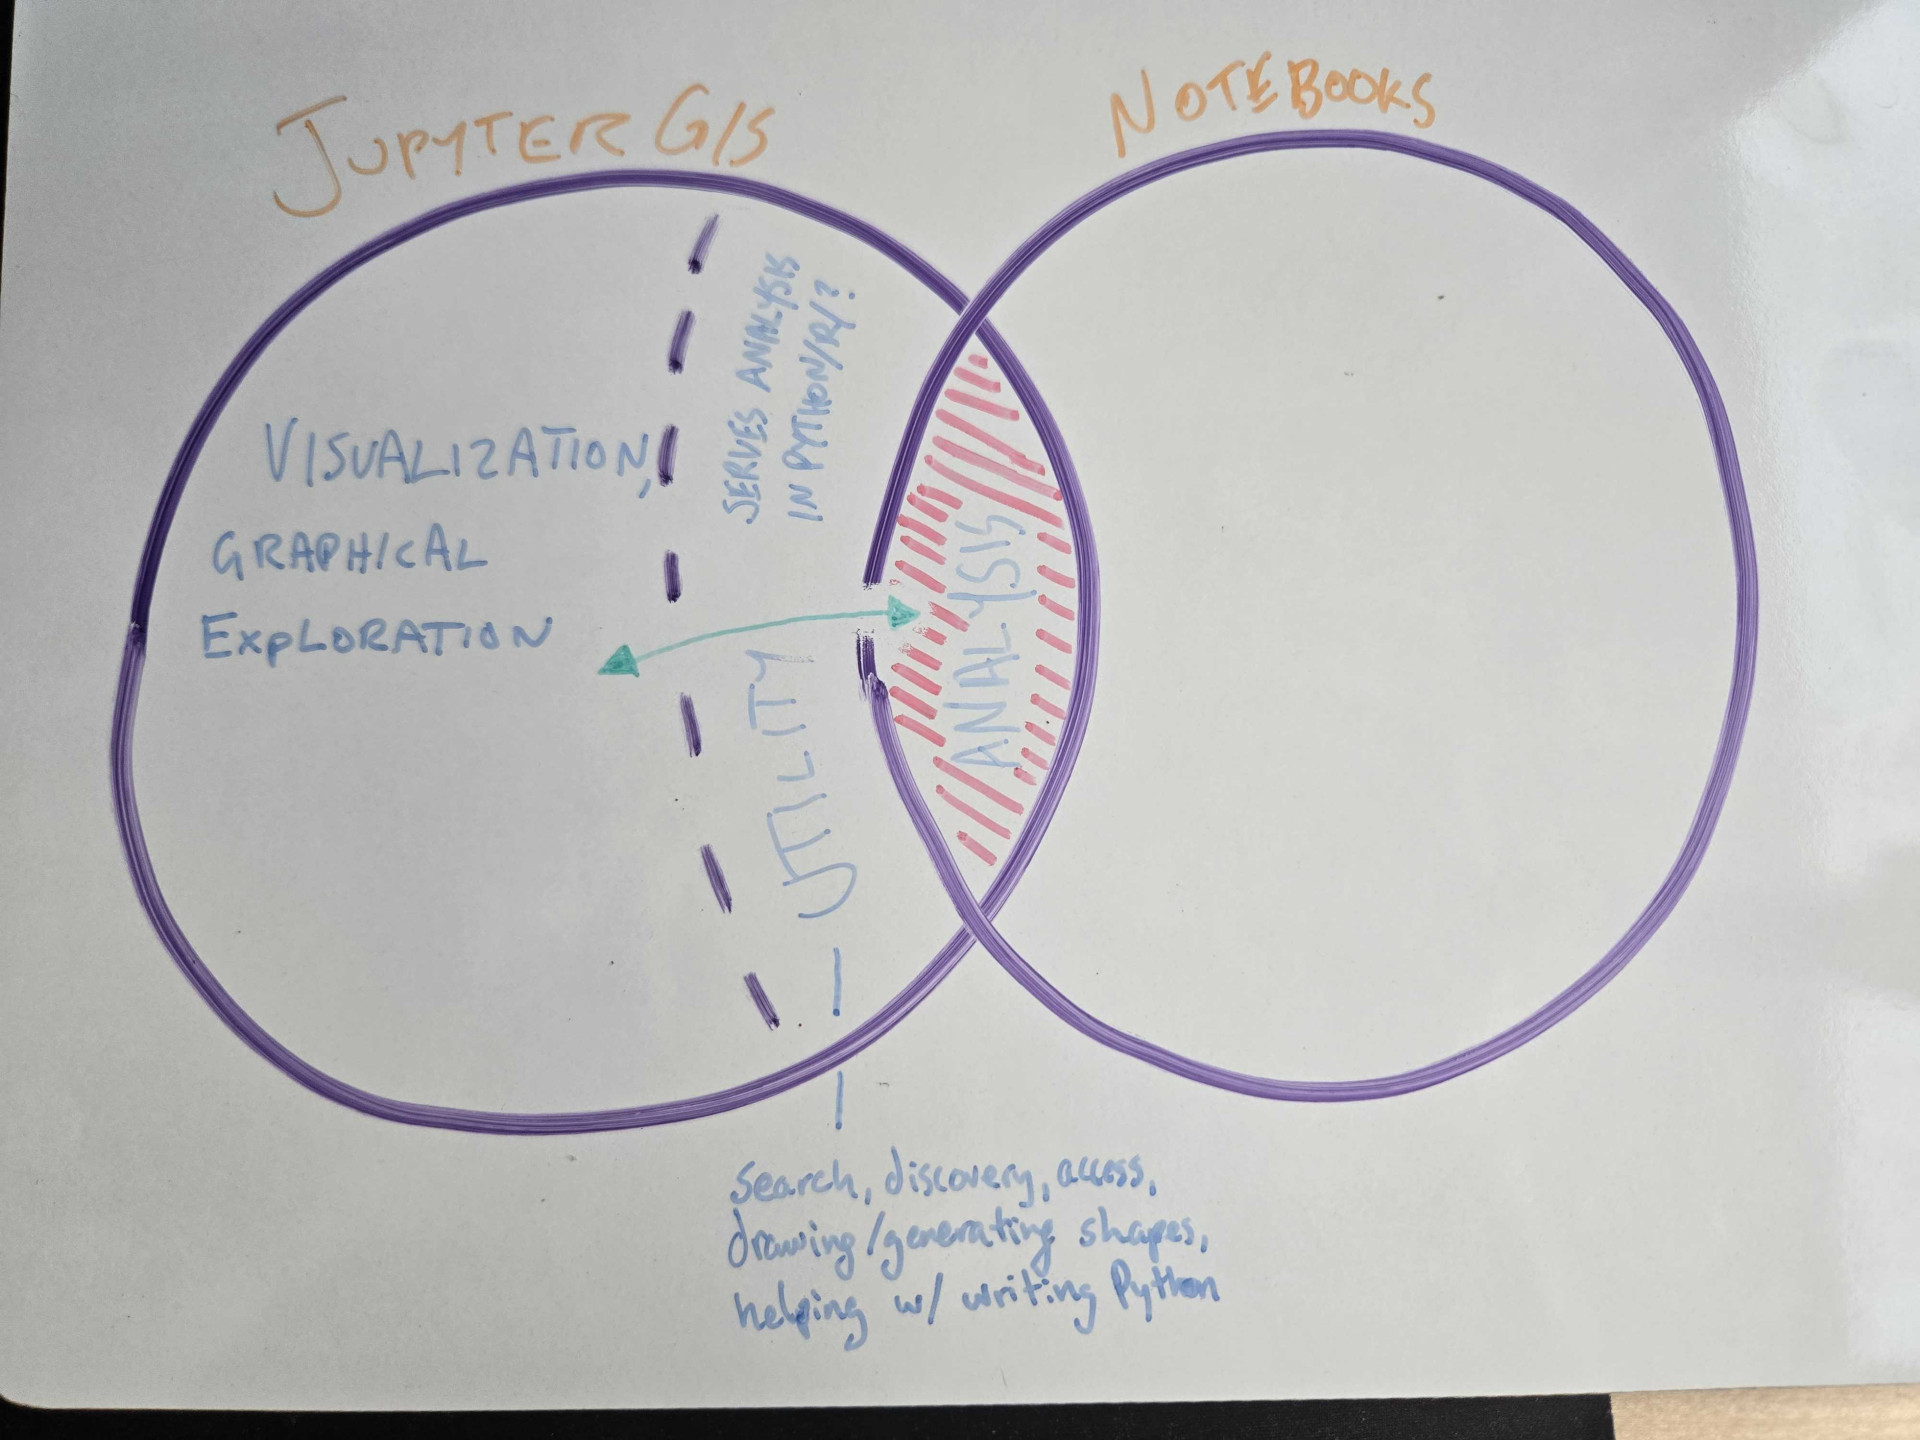 JUPYTER GIS
NOTEBOOKS
VISUALIZATION,
GRAPHICAL
EXPLORATION
SERVES ANALYSIS
IN PYTHON/R/?
UTILITY
ANALYSIS
Search, discovery, access,
drawing/generating shapes,
helping w/ writing Python